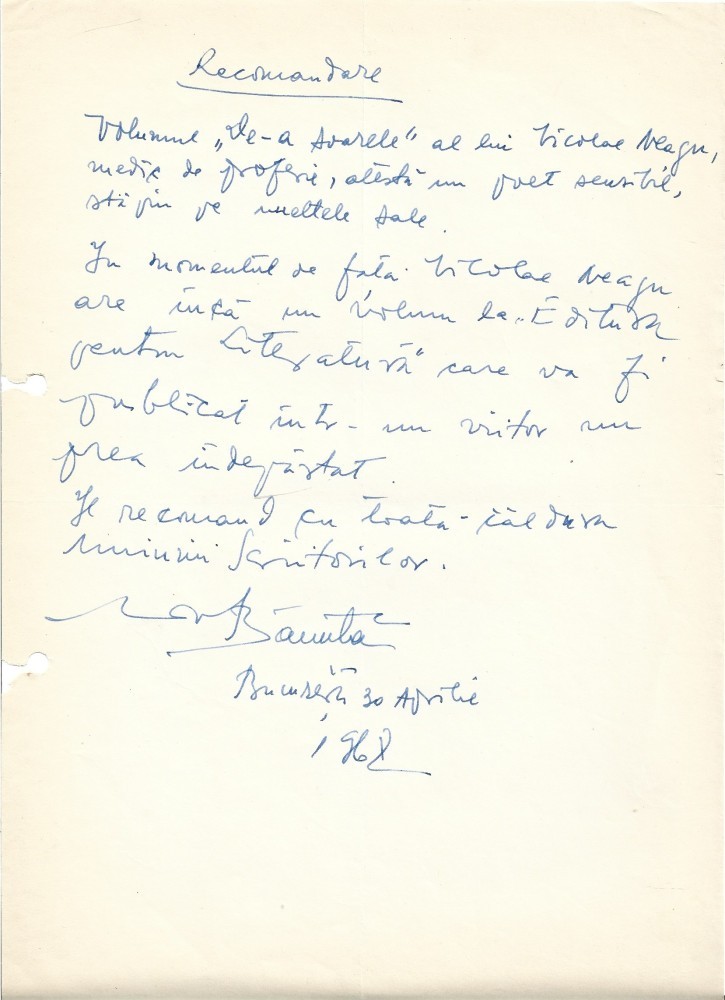 Recomandare
Volumul „De-a soarele" al lui Nicolae Neagu,
medic de profesie, atestă un poet sensibil,
stăpîn pe uneltele sale.
In momentul de față Nicolae Neagu
are încă un volum la „Editura
pentru Literatură" care va fi
publicat într-un viitor nu
prea îndepărtat.
Il recomand cu toată căldura
Uniunii Scriitorilor.
Bănuță
București 30 Aprilie
1968